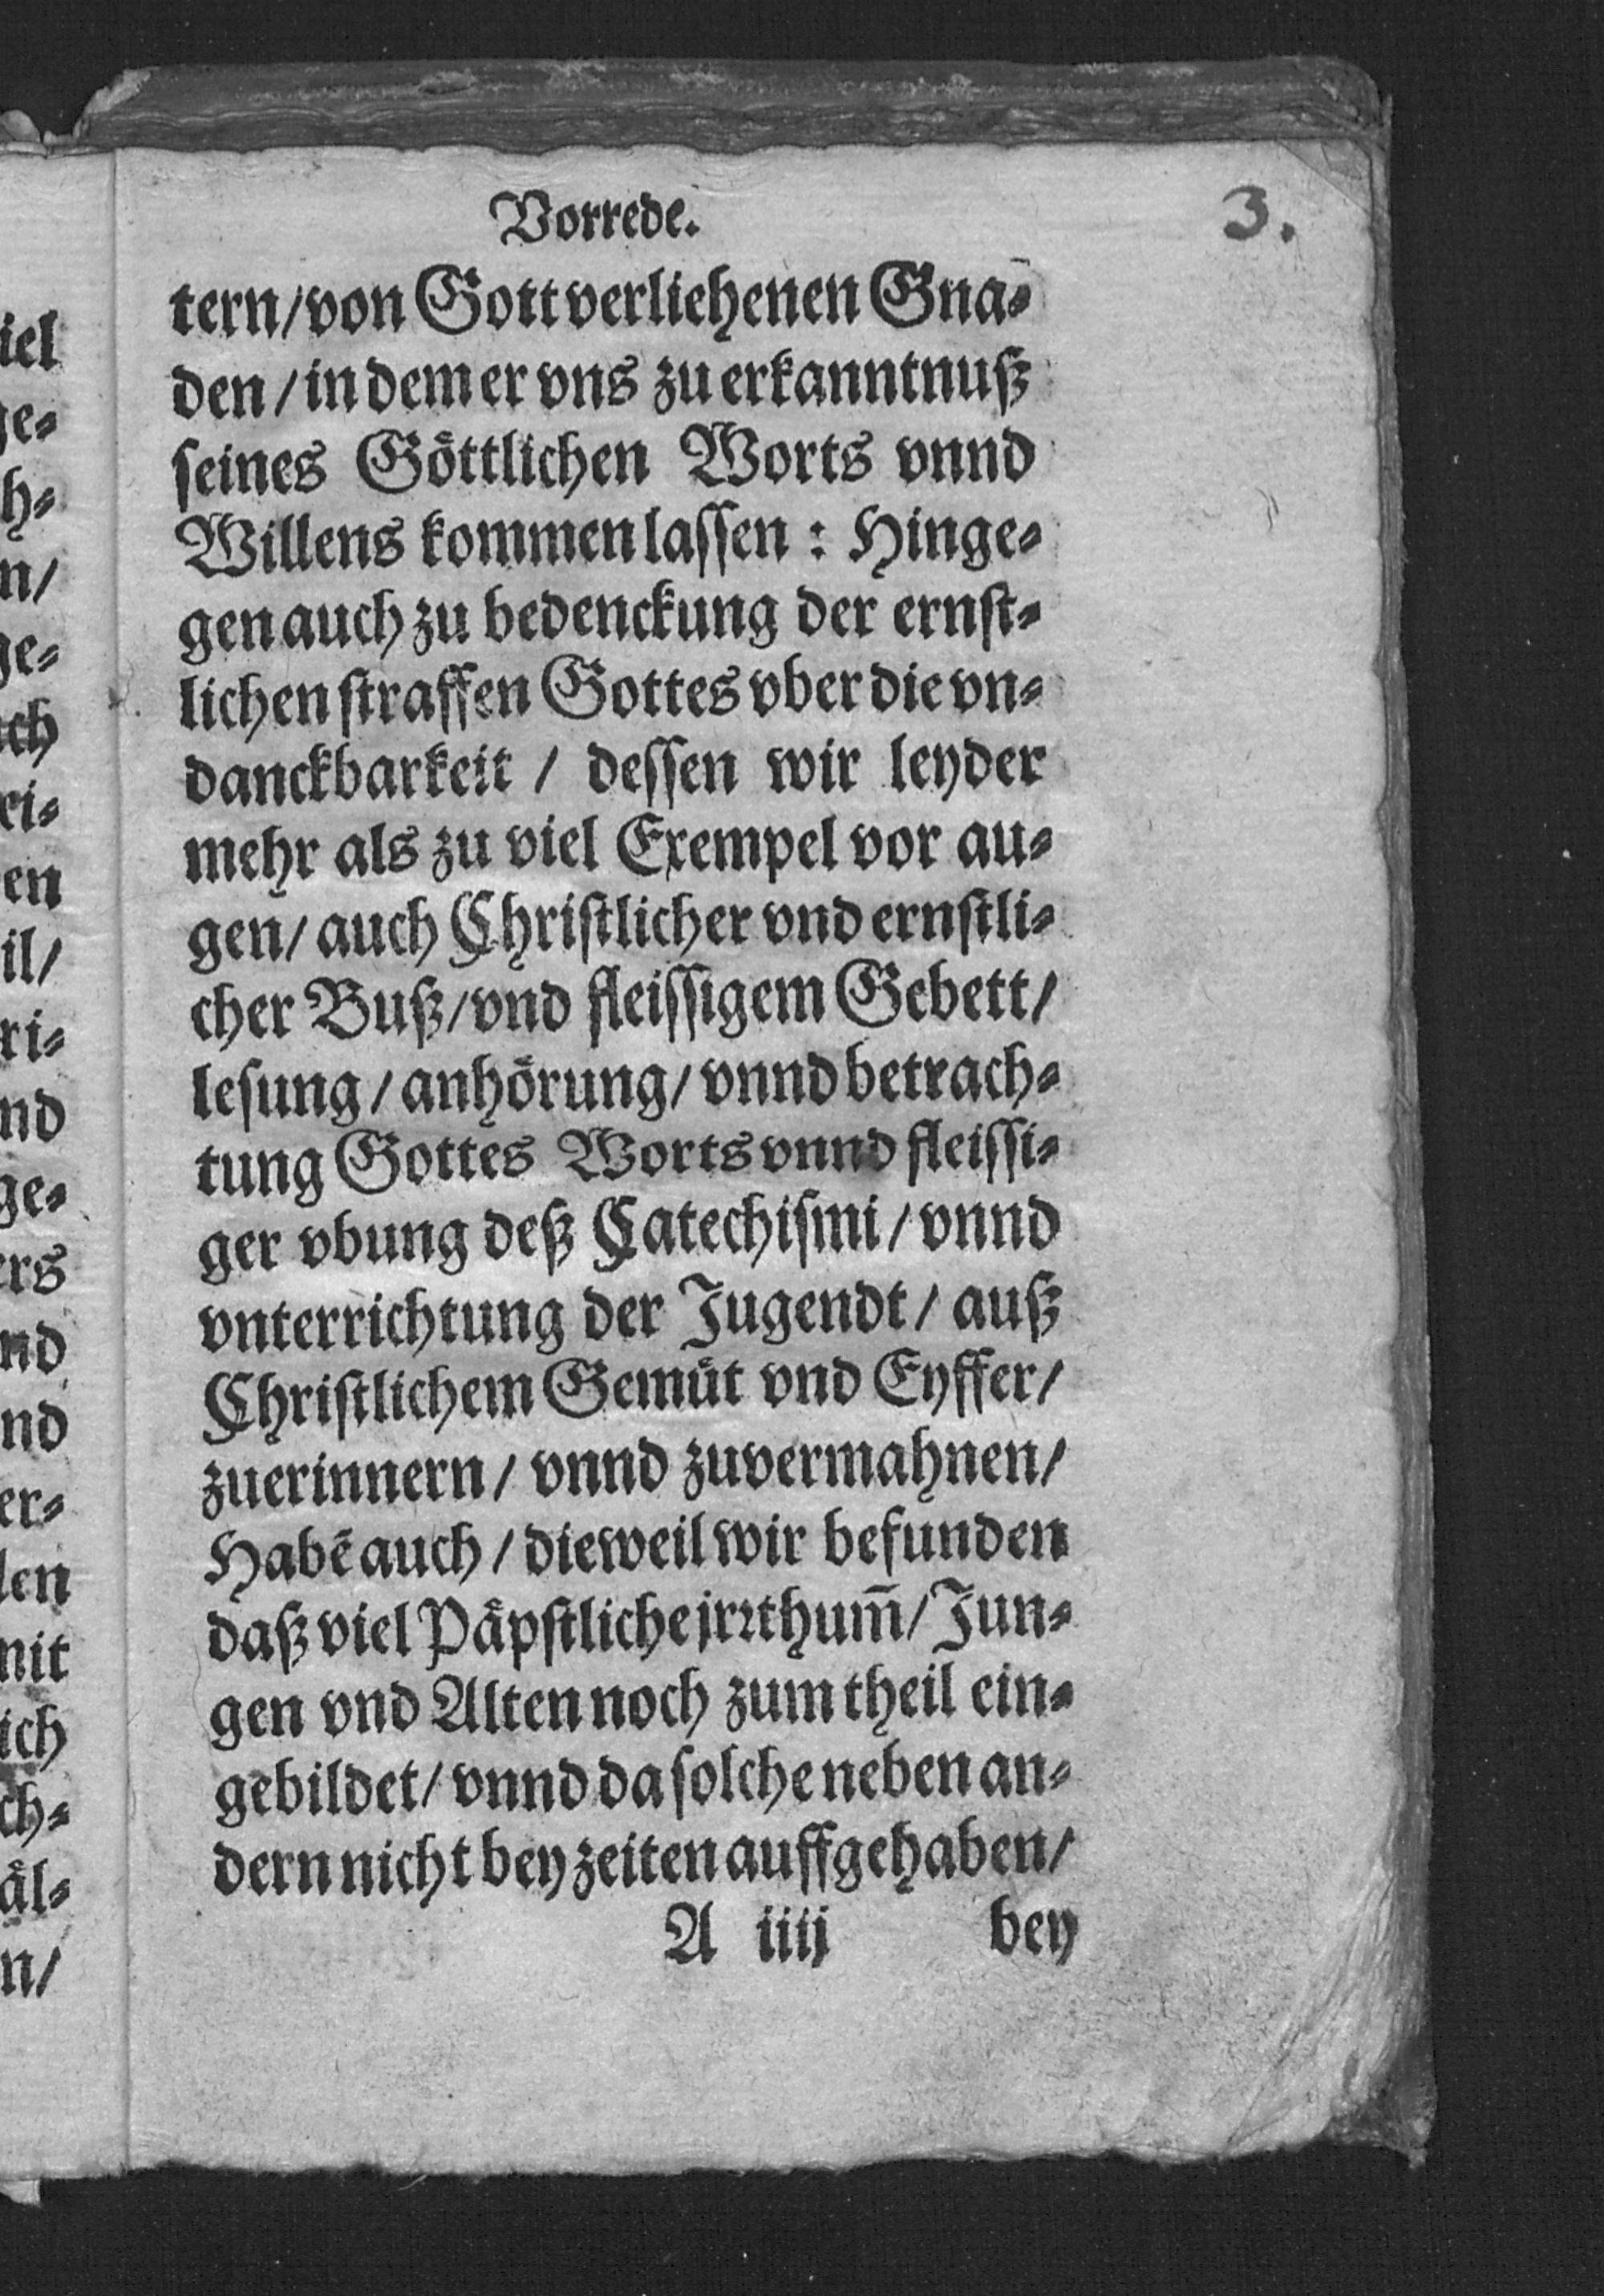 Vorrede.
3.
tern/von Gott verliehenen Gna⸗
den/in dem er vns zu erkanntnuß
ſeines Goͤttlichen Worts vnnd
Willens kommen laſſen: Hinge⸗
gen auch zu bedenckung der ernſt⸗
lichen ſtraffen Gottes vber die vn⸗
danckbarkeit / deſſen wir leyder
mehr als zu viel Exempel vor au⸗
gen/ auch Chriſtlicher vnd ernſtli⸗
cher Buß/vnd fleiſſigem Gebett/
leſung/anhoͤrung/vnnd betrach⸗
tung Gottes Worts vnnd fleiſſi⸗
ger vbung deß Catechiſmi/vnnd
vnterrichtung der Jugendt/ auß
Chriſtlichem Gemuͤt vnd Eyffer/
zuerinnern/ vnnd zuvermahnen/
Habẽ auch/dieweil wir befunden
daß viel Paͤpſtliche jrꝛthum̃/Jun⸗
gen vnd Alten noch zum theil ein⸗
gebildet/vnnd da ſolche neben an⸗
dern nicht bey zeiten auffgehaben/
A iiij bey
iel
ge⸗
h⸗
n/
ge⸗
ch
ri⸗
en
il/
ri⸗
nd
ge⸗
ers
nd
nd
er⸗
len
mit
ich
ch⸗
aͤl⸗
n/